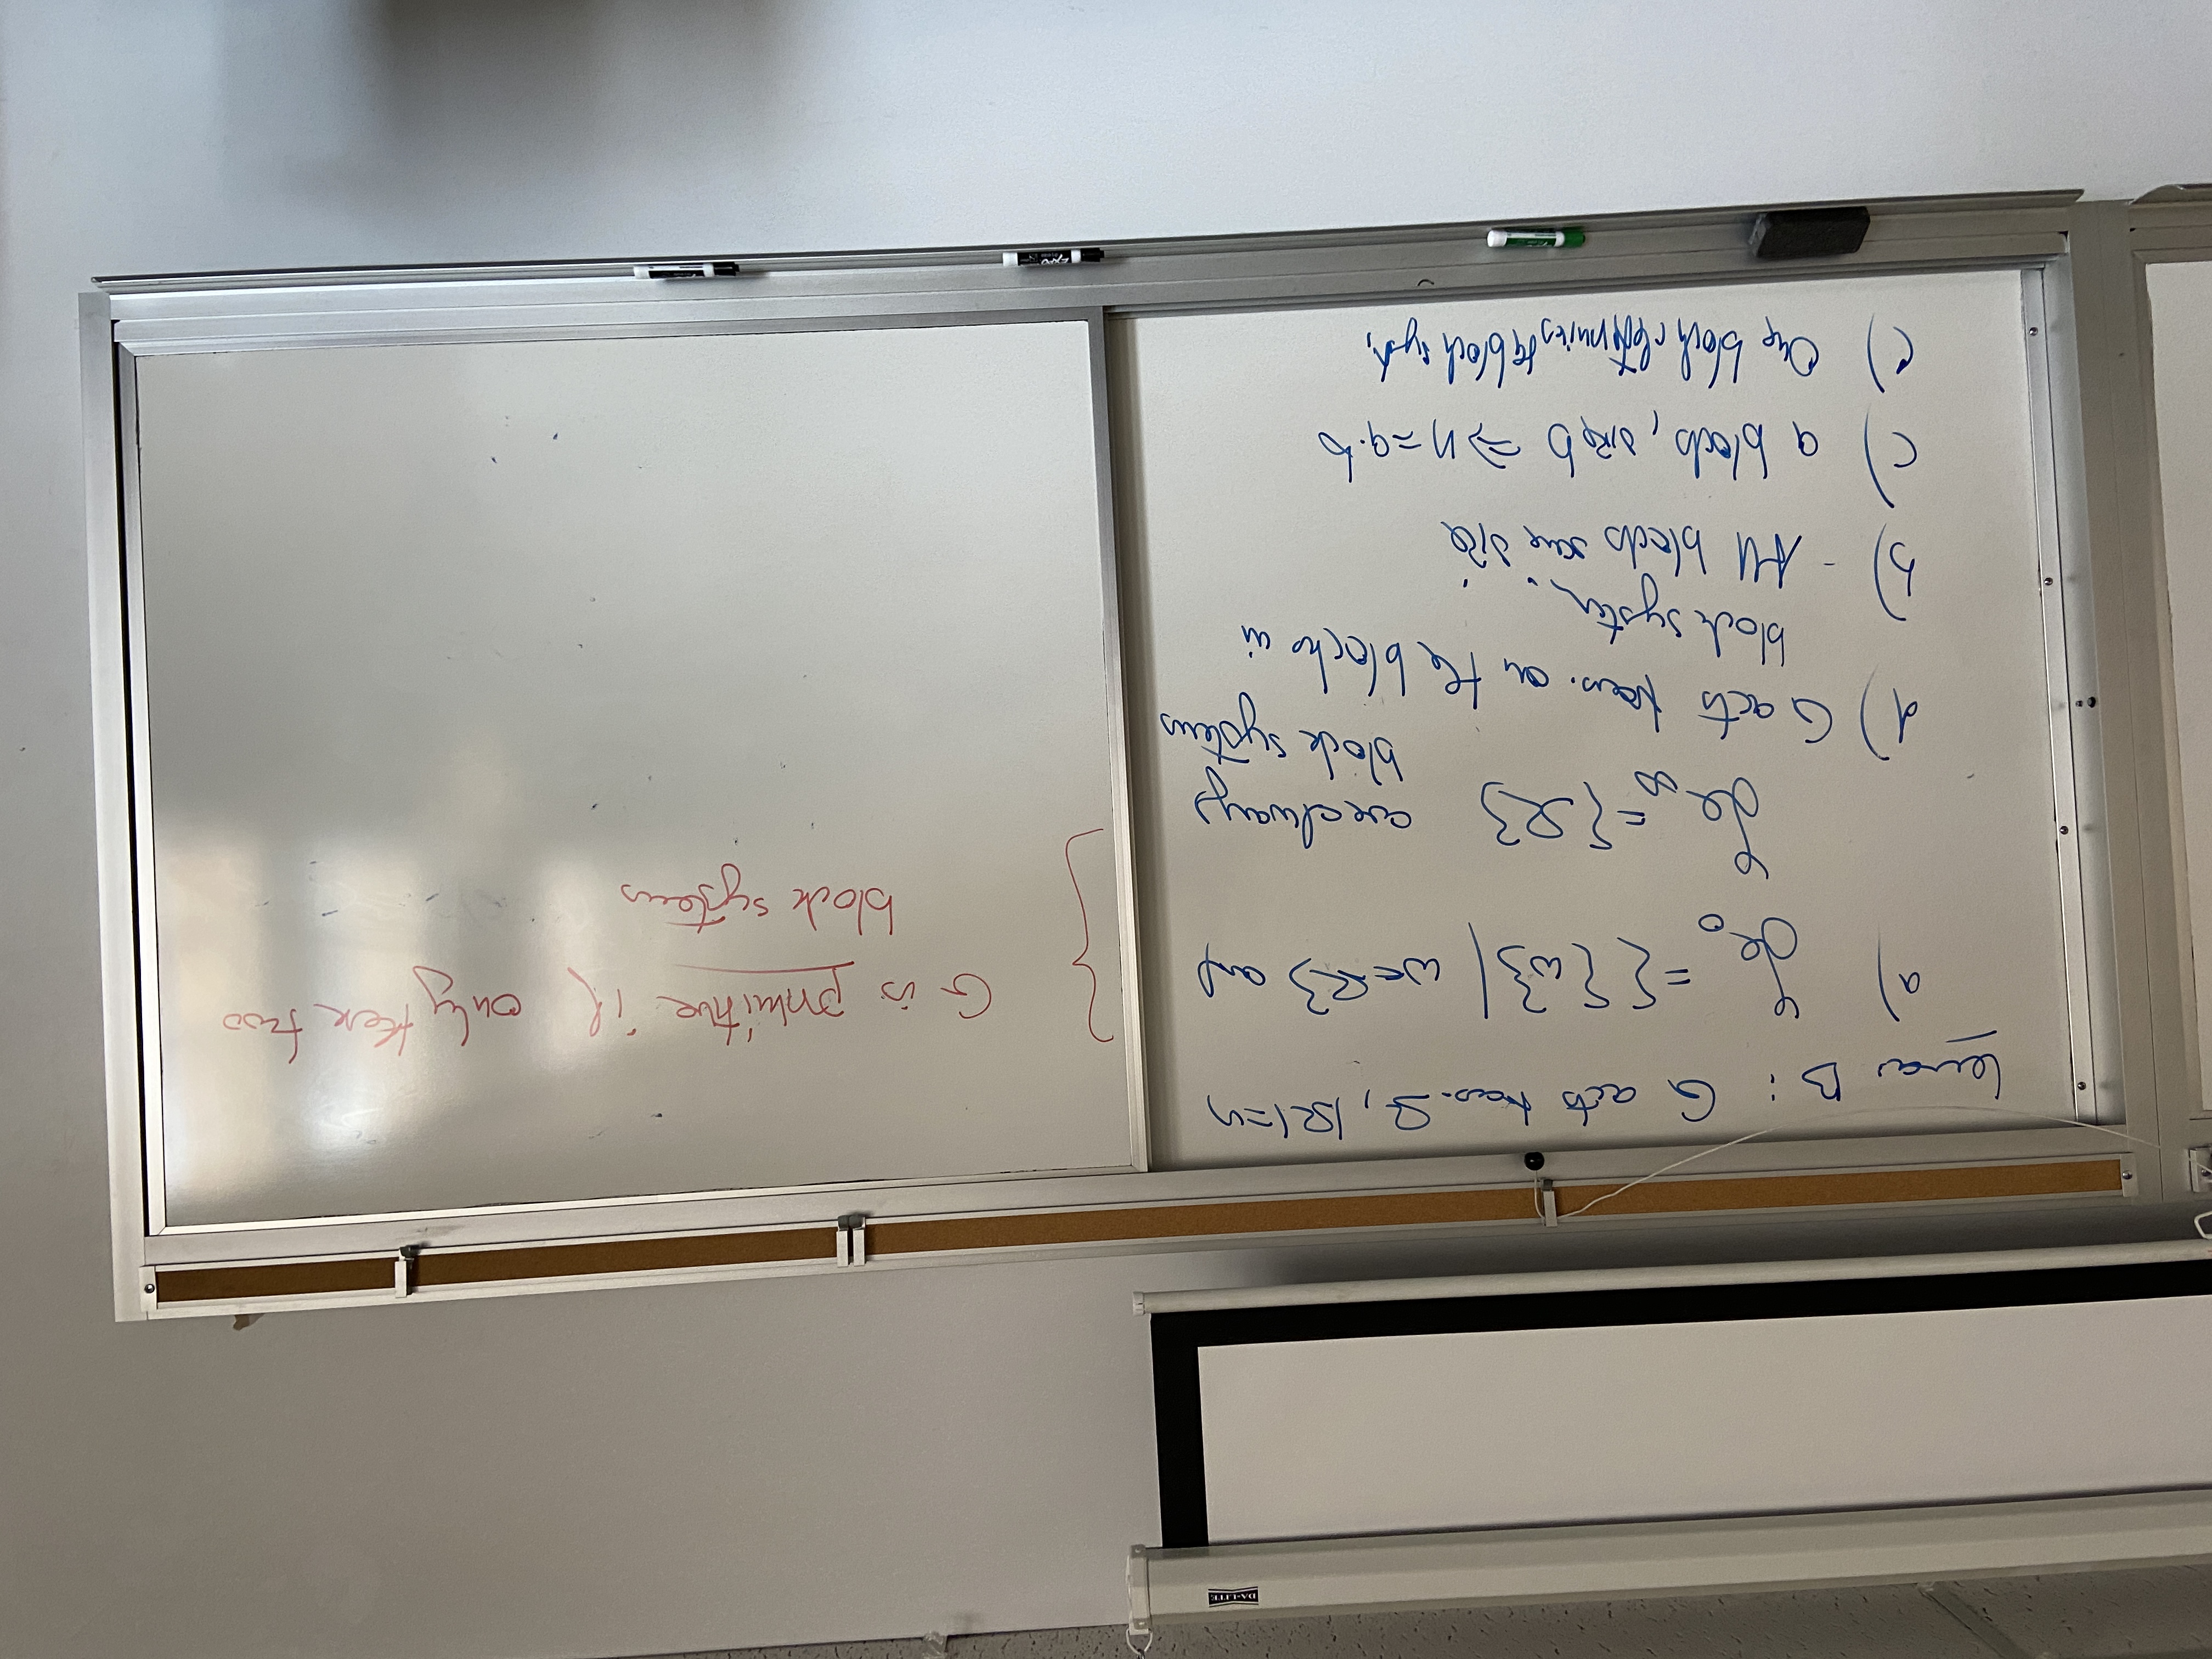 Lemma B: G acts trans. Ω, |Ω|=n
a) 𝓑₀ = {{ω} | ω∈Ω} and
𝓑∞ = {Ω} are always
block systems
d) G acts trans. on the blocks in
block system.
b) - All blocks same size
c) a blocks, size b ⇒ n=a·b
e) One block determines the block syst.
G is primitive if only these two
block systems
DA-LITE